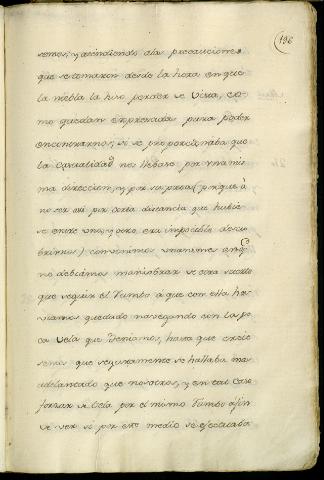 136
semos; y atendiendo alas precauciones
que se tomaron desde la hora en que
la niebla la hiso perder de Vista, co-
mo quedan expresadas para poder
encontrarnos, si se proporcionaba que
la casualidad nos llebase por vna mis
ma direccion, y por su proa (porque à
no ser asi por corta distancia que hubie
se entre vno, y otro era imposible descu
brirnos) convenimos vnanimes en q.e
no debiamos maniobrar de otra suerte
que seguir el Rumbo à que con ella ha-
viamos quedado navegando con la po
ca Vela que teniamos, hasta que creie
semos que seguramente se hallaba mas
adelantado que nosotros, y en tal caso
forzar de Vela por el mismo Rumbo afin
de ver si por este medio se efectuaba